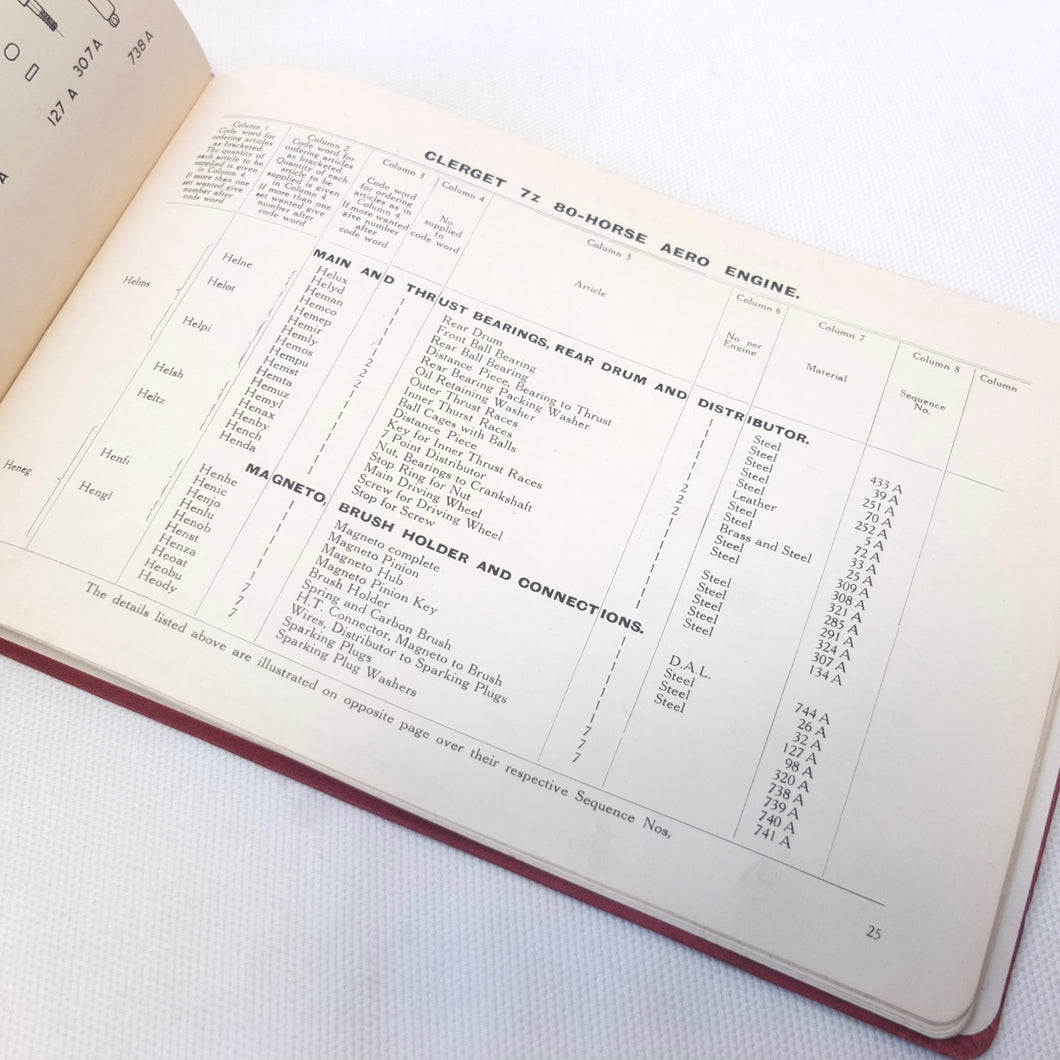 127 A
307 A
738 A
A
CLERGET 7z 80-HORSE AERO ENGINE.
Column 1
Code word for
ordering articles
as bracketed.
The quantity of
each article to be
supplied is given
in Column 4
If more than one
set wanted give
number after
code word
Column 2
Code word for
ordering articles
as bracketed.
Quantity of each
article to be
supplied is given
in Column 4.
If more than one
set wanted give
number after
code word
Column 3
Code word
for ordering
articles as in
Column 4.
If more wanted
give number
after
code word
Column 4
No.
supplied
to
code word
Column 5
Article
Column 6
No per
Engine
Column 7
Material
Column 8
Sequence
No.
Column
MAIN AND THRUST BEARINGS, REAR DRUM AND DISTRIBUTOR.
Helms
Heneg
Helne
Helot
Helpi
Helsh
Heltz
Henfi
Hengl
Helux 1 Rear Drum 1 Steel 433 A
Helyd 1 Front Ball Bearing 1 Steel 39 A
Heman 1 Rear Ball Bearing 1 Steel 251 A
Hemco 1 Distance Piece, Bearing to Thrust 1 Steel 70 A
Hemep 1 Rear Bearing Packing Washer 1 Steel 252 A
Hemir 1 Oil Retaining Washer 1 Leather 5 A
Hemly 2 Outer Thrust Races 2 Steel 72 A
Hemos 2 Inner Thurst Races 2 Steel 33 A
Hempu 2 Ball Cages with Balls 2 Brass and Steel 25 A
Hemst 1 Distance Piece 1 Steel 309 A
Hemta 1 Key for Inner Thrust Races 1 Steel 308 A
Hemuz 1 7 Point Distributor 1 321 A
Hemyl 1 Nut, Bearings to Crankshaft 1 Steel 285 A
Henax 1 Stop Ring for Nut 1 Steel 291 A
Henby 1 Main Driving Wheel 1 Steel 324 A
Hench 1 Screw for Driving Wheel 1 Steel 307 A
Henda 1 Stop for Screw 1 Steel 134 A
MAGNETO, BRUSH HOLDER AND CONNECTIONS.
Henhe 1 Magneto complete 1 D.A.L. 744 A
Henic 1 Magneto Pinion 1 Steel 26 A
Henjo 1 Magneto Hub 1 Steel 32 A
Henlu 1 Magneto Pinion Key 1 Steel 127 A
Henob 1 Brush Holder 1 98 A
Henst 1 Spring and Carbon Brush 1 320 A
Henza 1 H.T. Connector, Magneto to Brush 1 738 A
Heoat 7 Wires, Distributor to Sparking Plugs 7 739 A
Heobu 7 Sparking Plugs 7 740 A
Heody 7 Sparking Plug Washers 7 741 A
The details listed above are illustrated on opposite page over their respective Sequence Nos.
25